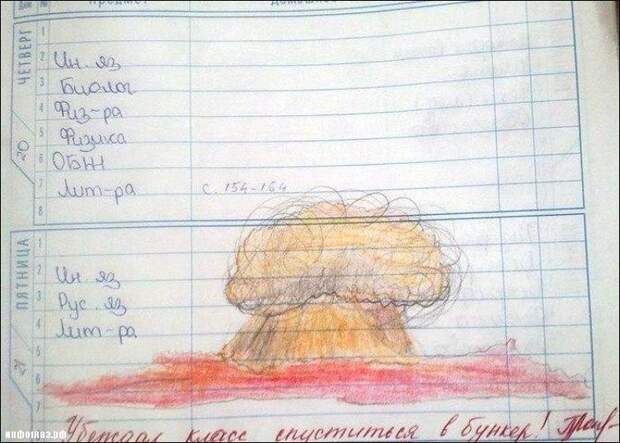 предмет
ЧЕТВЕРГ
20
1
2 Ин. яз
3 Биолог
4 Физ-ра
5 Физика
6 ОБЖ
7 Лит-ра с. 154-164
8
ПЯТНИЦА
21
1
2 Ин. яз
3 Рус. яз
4 Лит-ра
5
6
7
Убеждал класс спуститься в бункер!
инфоглаз.рф